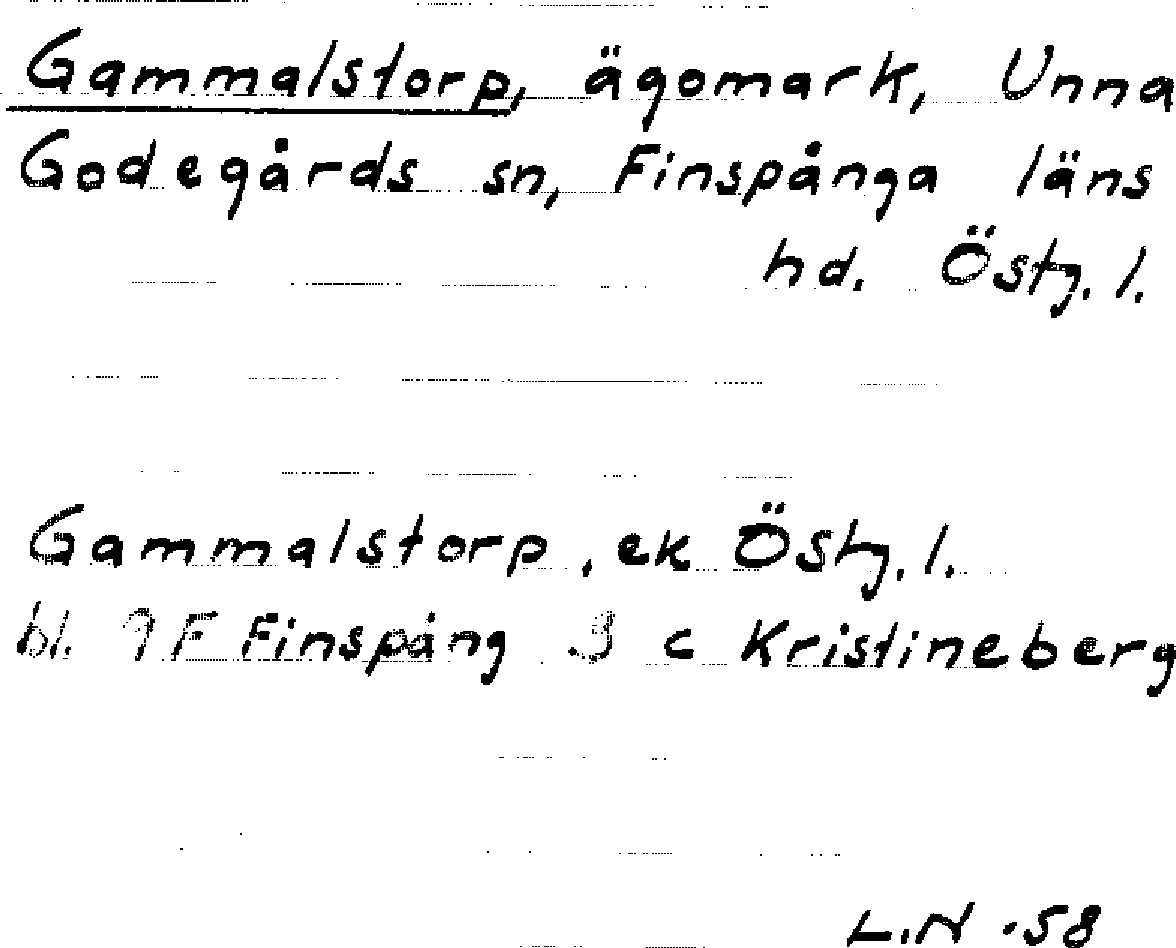 Gammalstorp, ägomark, Unna
Godegårds sn, Finspånga läns
hd. Östg. l.
Gammalstorp, ek Östg. l.
bl. 9F Finspång 9 c Kristineberg
L.N -58